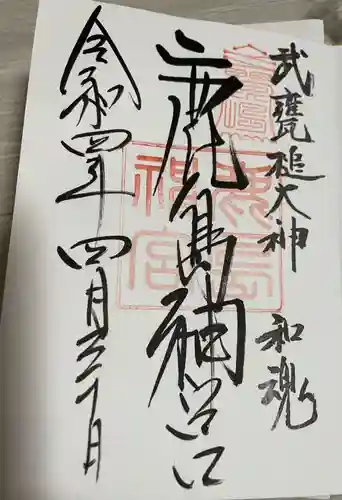 武甕槌大神　和魂
鹿島神宮
鹿島
神宮
令和四年四月三十日